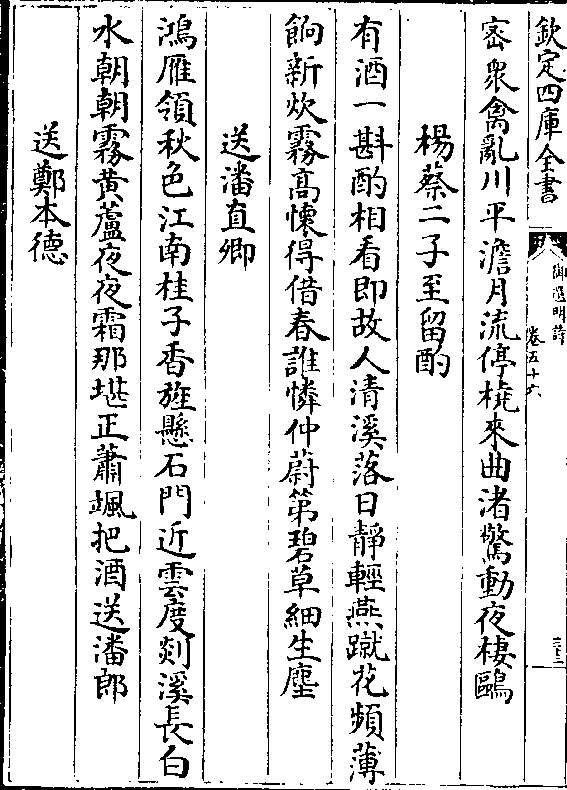 欽定四庫全書
御選明詩
卷五十六
三十二
密衆禽亂川平澹月流停橈來曲渚驚動夜棲鷗
楊蔡二子至留酌
有酒一斟酌相看即故人清溪落日靜輕燕蹴花頻薄
餉新炊霧高懷得借春誰憐仲蔚第碧草細生塵
送潘直卿
鴻雁領秋色江南桂子香旌懸石門近雲度剡溪長白
水朝朝霧黄蘆夜夜霜那堪正蕭颯把酒送潘郎
送鄭本德